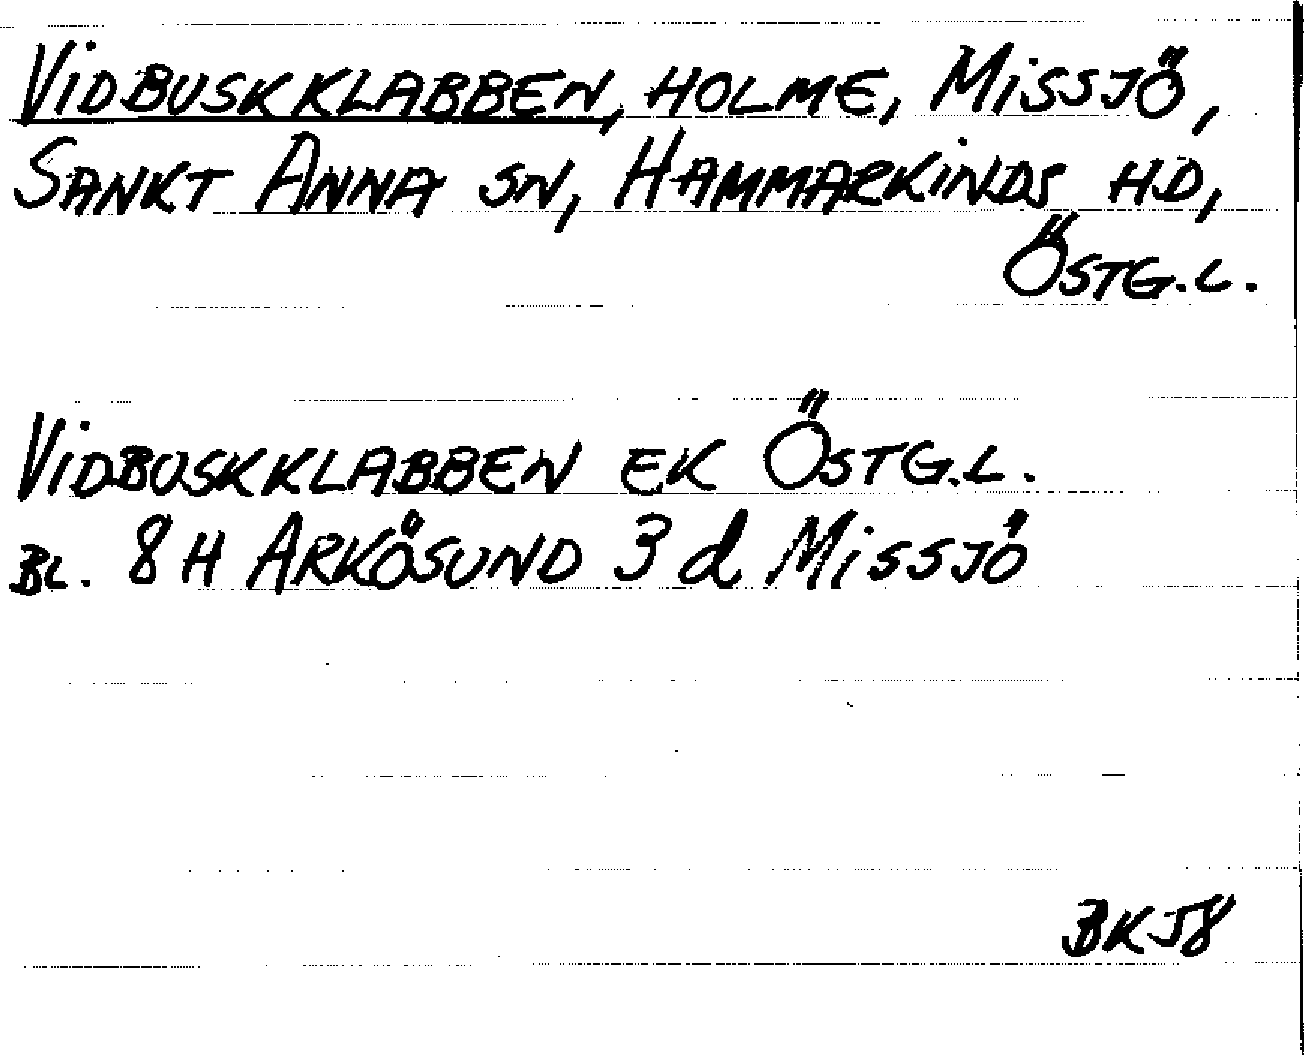 VIDBUSKKLABBEN, HOLME, MISSJÖ,
SANKT ANNA SN, HAMMARKINDS HD,
ÖSTG.L.
VIDBUSKKLABBEN EK ÖSTG.L.
BL. 8 H ARKÖSUND 3 d MISSJÖ
BK58